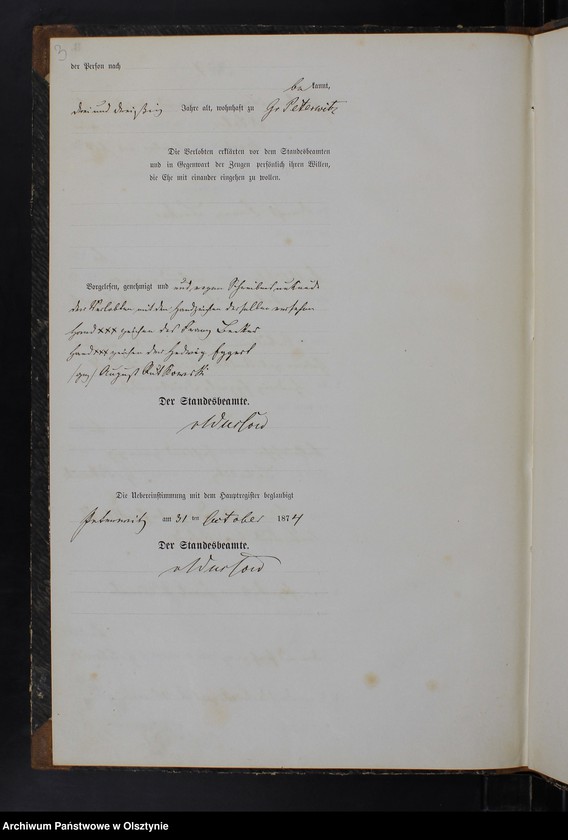 3
der Person nach
be kannt,
drei und dreißig Jahre alt, wohnhaft zu Gr Peterwitz
Die Verlobten erklärten vor dem Standesbeamten
und in Gegenwart der Zeugen persönlich ihren Willen,
die Ehe mit einander eingehen zu wollen.
Vorgelesen, genehmigt und und, wegen Schreibensunkunde
der Verlobten mit den Handzeichen derselben versehen
Hand xxx zeichen des Franz Becker
Hand xxx zeichen der Hedwig Eggert
/gez/ August Rutkowski
Der Standesbeamte.
Die Uebereinstimmung mit dem Hauptregister beglaubigt
Peterwitz am 31 ten October 1874
Der Standesbeamte.
Archiwum Państwowe w Olsztynie